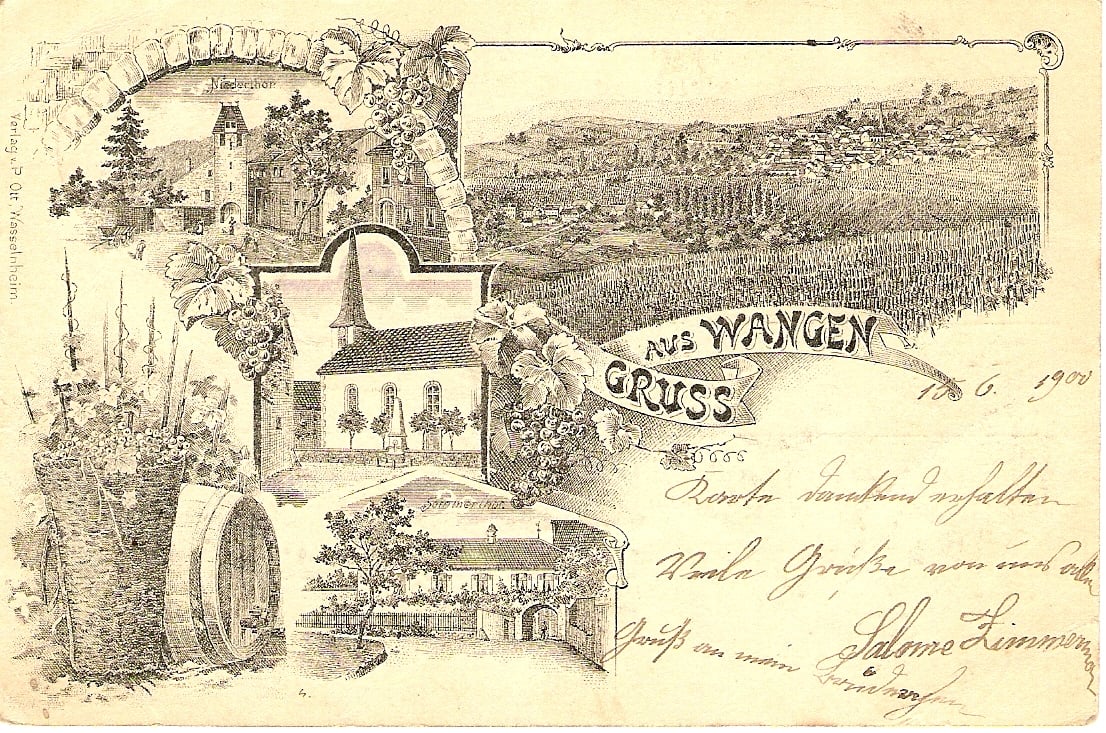 Niederthor.
Verlag v. P. Ott Wasselnheim.
AUS WANGEN
GRUSS
6. 1900
Karte dankend erhalten
Viele Grüße von uns allen
Salome Zimmerman
Gruß an mein Brüderchen